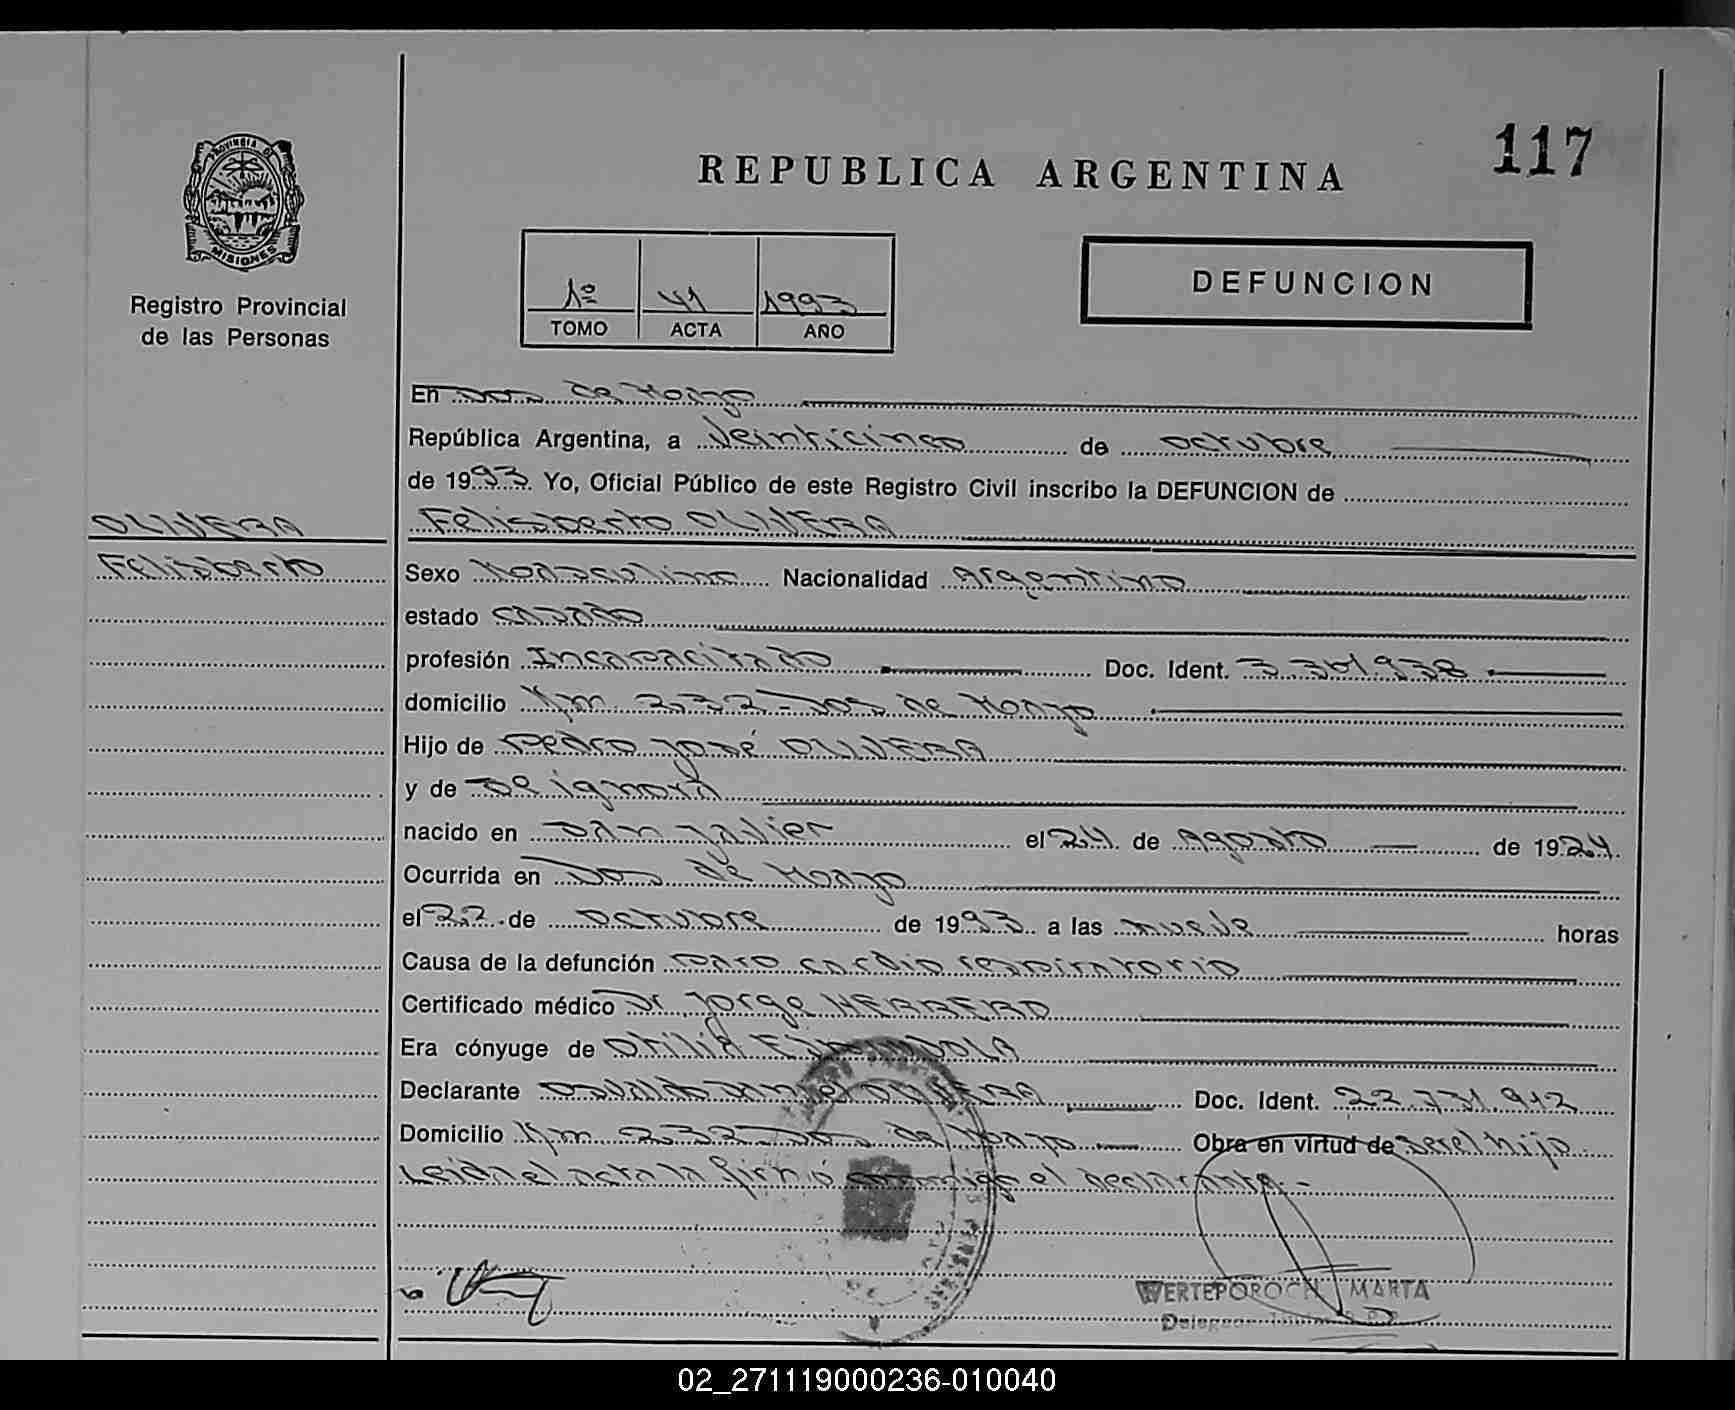 117
PROVINCIA DE
MISIONES
REPUBLICA ARGENTINA
Registro Provincial
de las Personas
1º 41 1993
TOMO ACTA AÑO
DEFUNCION
En Dos de Mayo
República Argentina, a veinticinco de octubre
de 1993. Yo, Oficial Público de este Registro Civil inscribo la DEFUNCION de
OLIVERA
Felisberto
Felisberto OLIVERA
Sexo Masculino Nacionalidad Argentino
estado casado
profesión Incapacitado Doc. Ident. 3.301.938
domicilio Km 232 - Dos de Mayo
Hijo de Pedro José OLIVERA
y de Se ignora
nacido en San Javier el 24 de agosto de 1924.
Ocurrida en Dos de Mayo
el 22 de octubre de 1993 a las nueve horas
Causa de la defunción paro cardio respiratorio
Certificado médico Dr. Jorge HERRERO
Era cónyuge de Otilia
Declarante Osvaldo Daniel OLIVERA Doc. Ident. 22.731.912
Domicilio Km 232 Dos de Mayo Obra en virtud de ser el hijo.
Leida el acta la firmó conmigo el declarante.-
WERTEPOROCH MARTA
02_271119000236-010040